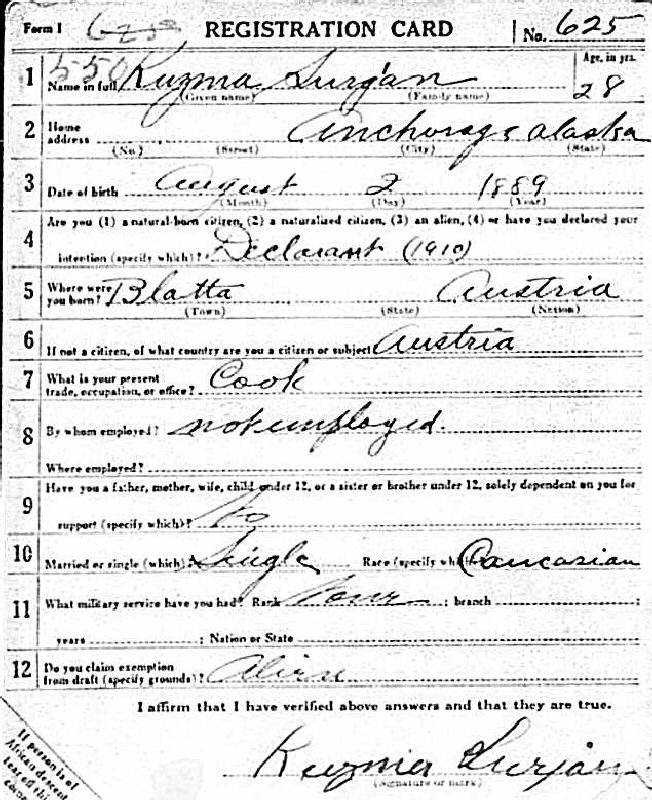 Form 1 625 REGISTRATION CARD No. 625
1 550 Name in full Kuzma Surjan Age, in yrs.
(Given name) (Family name) 28
2 Home address Anchorage Alaska
(No.) (Street) (City) (State)
3 Date of birth August 2 1889
(Month) (Day) (Year)
4 Are you (1) a natural-born citizen, (2) a naturalized citizen, (3) an alien, (4) or have you declared your
intention (specify which)? Declarant (1910)
5 Where were you born? Blatta Austria
(Town) (State) (Nation)
6 If not a citizen, of what country are you a citizen or subject Austria
7 What is your present trade, occupation, or office? Cook
8 By whom employed? not employed.
Where employed?
9 Have you a father, mother, wife, child under 12, or a sister or brother under 12, solely dependent on you for
support (specify which)? No
10 Married or single (which) Single Race (specify which) Caucasian
11 What military service have you had? Rank None ; branch ;
years ; Nation or State
12 Do you claim exemption from draft (specify grounds)? Alien
I affirm that I have verified above answers and that they are true.
Kuzma Surjan
(Signature or mark)
If person is of
African descent
tear off this
corner